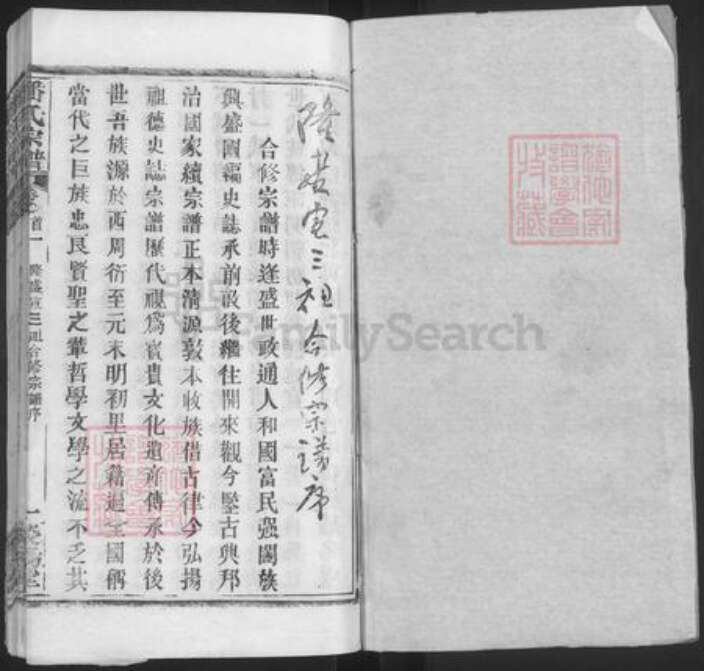 隆盛宣三祖合修宗譜序
合修宗譜時逢盛世政通人和國富民强闔族
興盛國編史誌承前啟後繼往開來觀今鑒古興邦
治國家續宗譜正本清源敦本收族借古律今弘揚
祖德史誌宗譜歷代視為寶貴文化遺産傳承於後
世吾族源於西周衍至元末明初里居藉遍全國稱
當代之巨族忠良賢聖之輩哲學文學之流不乏其
潘氏宗譜
卷首一
三祖合修宗譜序
一
FamilySearch